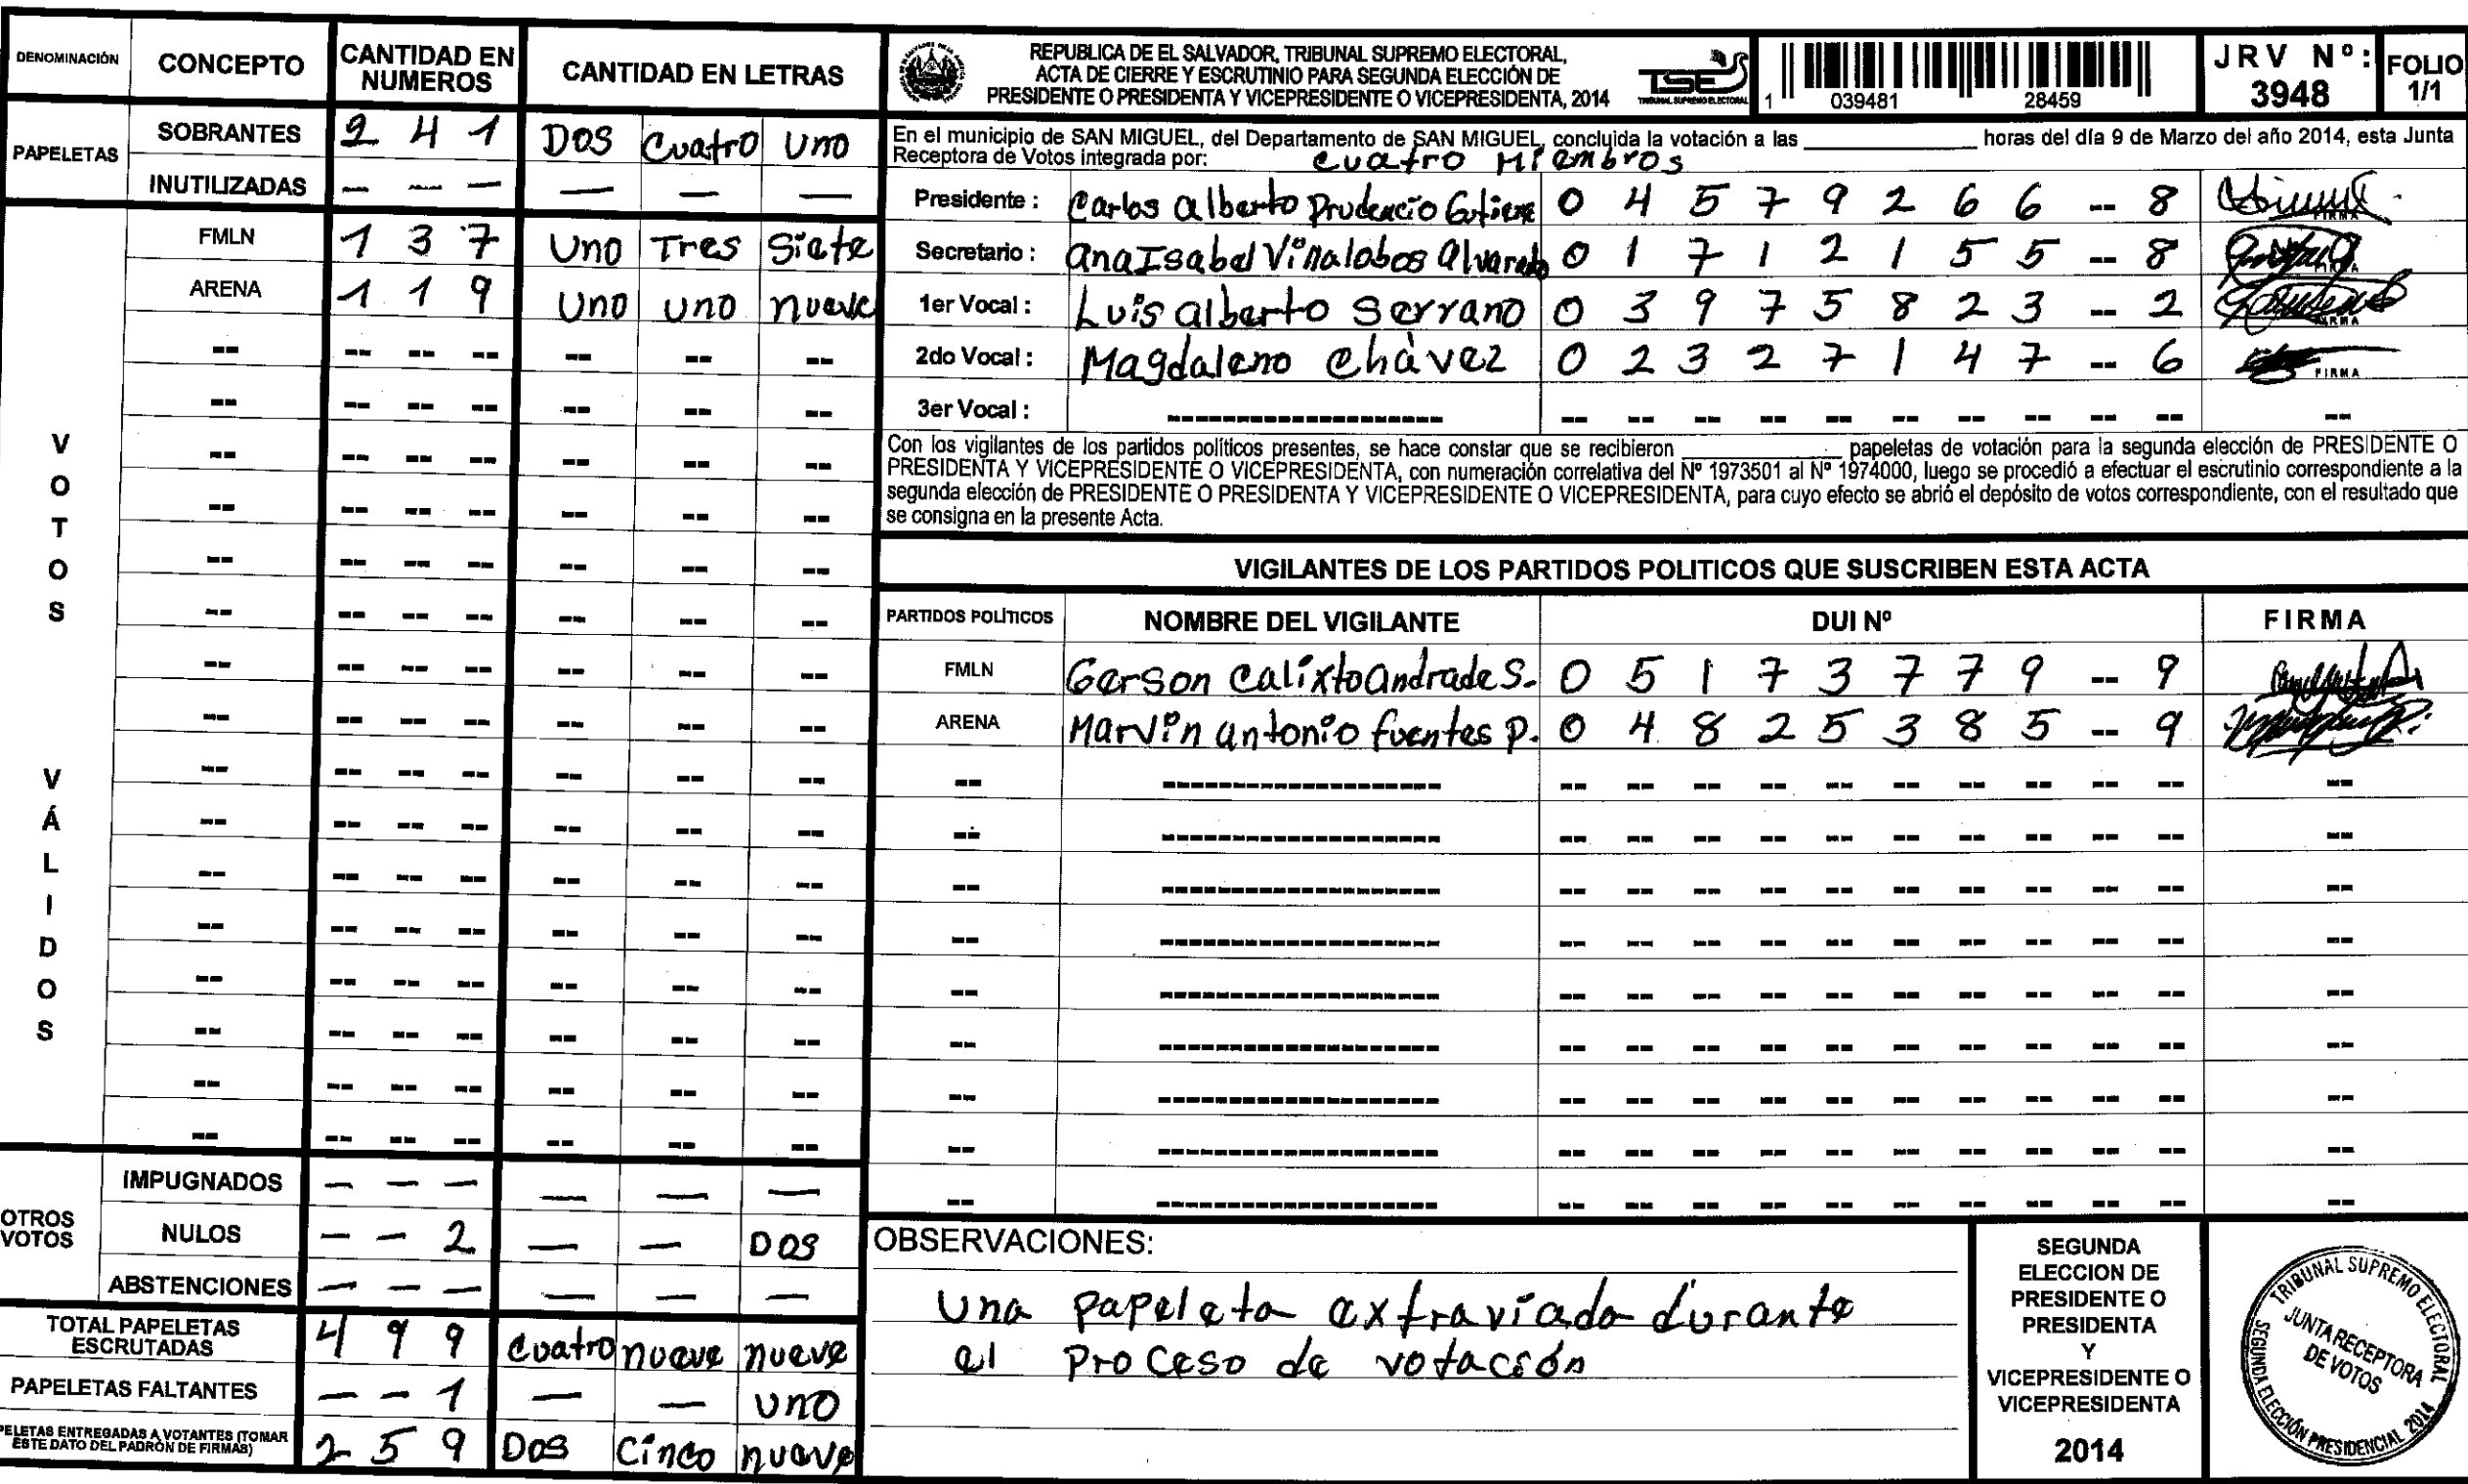 DENOMINACIÓN CONCEPTO CANTIDAD EN NUMEROS CANTIDAD EN LETRAS
PAPELETAS
SOBRANTES 2 4 1 DOS Cuatro Uno
INUTILIZADAS — — — — — —
VOTOS VÁLIDOS
FMLN 1 3 7 Uno Tres Siete
ARENA 1 1 9 Uno uno nueve
OTROS VOTOS
IMPUGNADOS — — — — — —
NULOS — — 2 — — DOS
ABSTENCIONES — — — — — —
TOTAL PAPELETAS ESCRUTADAS 4 9 9 Cuatro nueve nueve
PAPELETAS FALTANTES — — 1 — — uno
PELETAS ENTREGADAS A VOTANTES (TOMAR ESTE DATO DEL PADRÓN DE FIRMAS) 2 5 9 Dos Cinco nueve
REPUBLICA DE EL SALVADOR, TRIBUNAL SUPREMO ELECTORAL,
ACTA DE CIERRE Y ESCRUTINIO PARA SEGUNDA ELECCIÓN DE
PRESIDENTE O PRESIDENTA Y VICEPRESIDENTE O VICEPRESIDENTA, 2014
TSE
TRIBUNAL SUPREMO ELECTORAL
1 039481 28459
JRV Nº: 3948
FOLIO 1/1
En el municipio de SAN MIGUEL, del Departamento de SAN MIGUEL, concluida la votación a las ____ horas del día 9 de Marzo del año 2014, esta Junta
Receptora de Votos integrada por: Cuatro Miembros
Presidente : Carlos Alberto Prudencio Gutierre 0 4 5 7 9 2 6 6 -- 8
Secretario : Ana Isabel Villalobos Alvarado 0 1 7 1 2 1 5 5 -- 8
1er Vocal : Luis Alberto Serrano 0 3 9 7 5 8 2 3 -- 2
2do Vocal : Magdaleno Chávez 0 2 3 2 7 1 4 7 -- 6 FIRMA
3er Vocal : -- -- -- -- -- -- -- -- -- -- --
Con los vigilantes de los partidos políticos presentes, se hace constar que se recibieron ____ papeletas de votación para la segunda elección de PRESIDENTE O
PRESIDENTA Y VICEPRESIDENTE O VICEPRESIDENTA, con numeración correlativa del Nº 1973501 al Nº 1974000, luego se procedió a efectuar el escrutinio correspondiente a la
segunda elección de PRESIDENTE O PRESIDENTA Y VICEPRESIDENTE O VICEPRESIDENTA, para cuyo efecto se abrió el depósito de votos correspondiente, con el resultado que
se consigna en la presente Acta.
VIGILANTES DE LOS PARTIDOS POLITICOS QUE SUSCRIBEN ESTA ACTA
PARTIDOS POLÍTICOS NOMBRE DEL VIGILANTE DUI Nº FIRMA
FMLN Gerson Calixto Andrade S. 0 5 1 7 3 7 7 9 -- 9
ARENA Marvin Antonio fuentes P. 0 4 8 2 5 3 8 5 -- 9
OBSERVACIONES:
Una papeleta extraviada durante
el proceso de votación
SEGUNDA
ELECCION DE
PRESIDENTE O
PRESIDENTA
Y
VICEPRESIDENTE O
VICEPRESIDENTA
2014
TRIBUNAL SUPREMO ELECTORAL
JUNTA RECEPTORA
DE VOTOS
SEGUNDA ELECCIÓN PRESIDENCIAL 2014